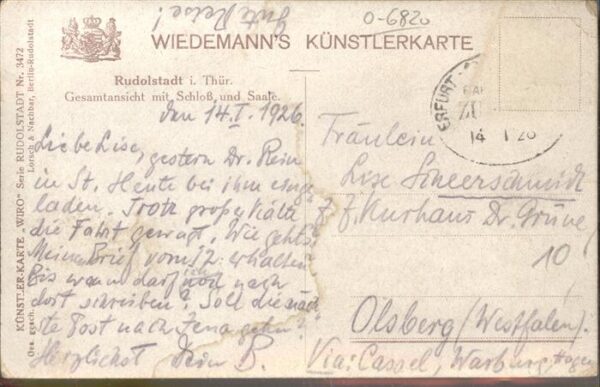 Gute Reise!
0-6820
WIEDEMANN'S KÜNSTLERKARTE
Rudolstadt i. Thür.
Gesamtansicht mit Schloß und Saale.
KÜNSTLER-KARTE „WIRO" Serie RUDOLSTADT Nr. 3472
Lorsch & Nachbar, Berlin-Rudolstadt
den 14.I.1926.
Liebe Lise, gestern Dr. Rein
in St. Heute bei ihm einge
laden. Trotz großer Kälte
die Fahrt gewagt. Wie gehts?
Meinen Brief vom 12. erhalten
Bis wann darf ich noch nach
dort schreiben? Soll die näch
ste Post nach Jena gehen?
Herzlichst Dein B.
ERFURT
14 1 26
Fräulein
Lise Scheerschmidt
z. Z. Kurhaus Dr. Grüne
10
Olsberg (Westfalen).
Via: Cassel, Warburg, Hagen